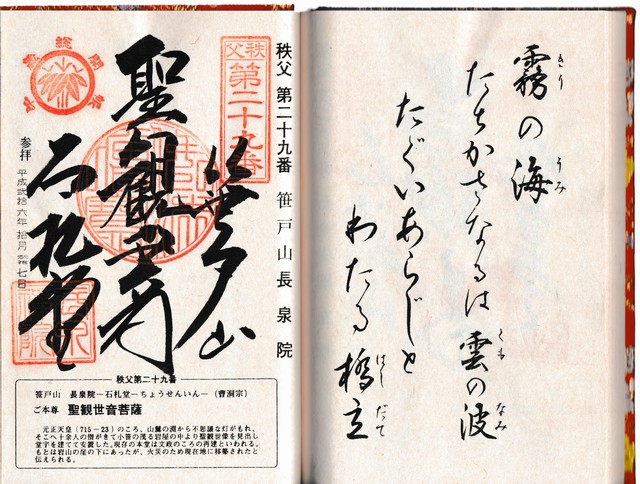 霧の海
きり うみ
たちかさなるは雲の波
くも なみ
たぐいあらじと
わたる橋立
はし だて
秩父 第二十九番 笹戸山長泉院
秩父
第二十九番
笹戸山
聖観世音
石札堂
総開
参拝
平成弐拾六年 拾月 七日
秩父第二十九番
笹戸山 長泉院－石札堂－ちょうせんいん－(曹洞宗)
ご本尊 聖観世音菩薩
元正天皇(715－23)のころ、山麓の淵から不思議な灯がもれ、
そこへ十余人の僧がきて小笹の茂る岩屋の中より聖観世像を見出し
堂宇を建てて安置した。現存の本堂は文政のころの再建といわれる。
もとは岩山の崖の下にあったが、火災のため現在地に移築されたと
伝えられる。